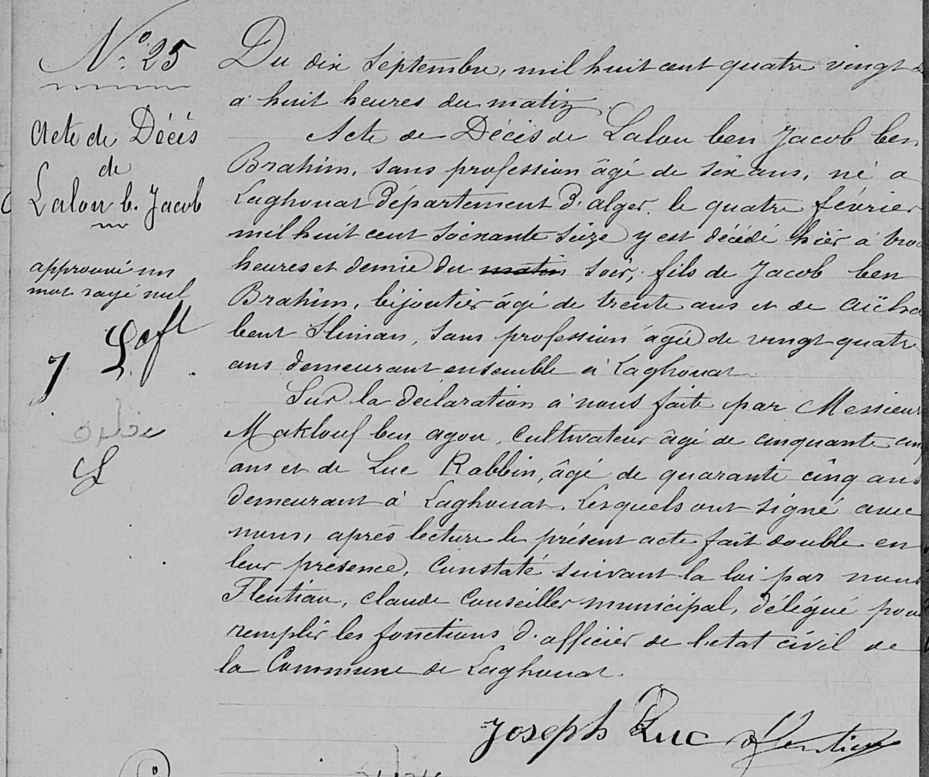 N° 25
Acte de Décès
de
Lalou b. Jacob
approuvé un
mot rayé nul
Du dix Septembre, mil huit cent quatre vingt
à huit heures du matin.
Acte de Décès de Lalou ben Jacob ben
Brahim, sans profession âgé de six ans, né a
Laghouat département d'alger, le quatre février
mil huit cent soixante seize y est décédé hier à
heures et demie du matin soir, fils de Jacob ben
Brahim, bijoutier âgé de trente ans et de Aïcha
bent Sliman, sans profession âgée de vingt quatre
ans demeurant ensemble à Laghouat.
Sur la déclaration à nous faite par Messieurs
Maklouf ben agou, Cultivateur âgé de cinquante cinq
ans et de Luc Rabbin, âgé de quarante cinq ans
demeurant à Laghouat, Lesquels ont signé avec
nous, après lecture le présent acte fait double en
leur présence, Constaté suivant la loi par nous
claude Conseiller municipal, délégué pour
remplir les fonctions d'officier de l'etat civil de
la Commune de Laghouat.
Joseph Luc